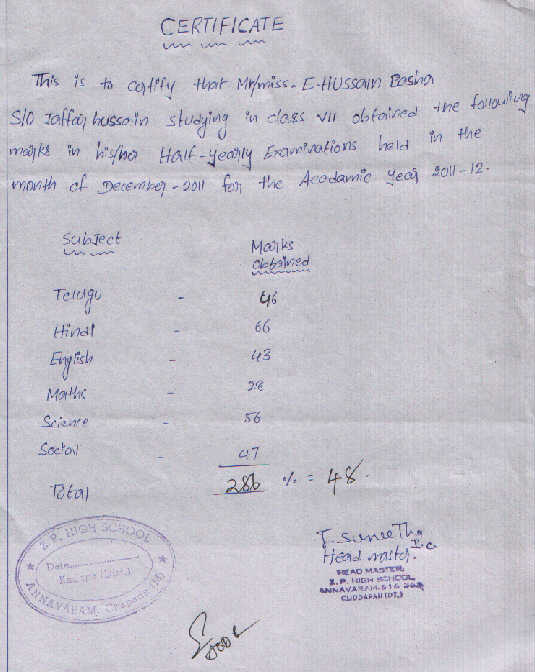 CERTIFICATE
This is to certify that Mr/miss. E. Hussain Basha
S/O Jaffar hussain studying in class VII obtained the following
marks in his/her Half-yearly Examinations held in the
month of December-2011 for the Acadamic year 2011-12.
Subject Marks Obtained
Telugu - 46
Hindi - 66
English - 43
Maths - 28
Science - 56
Social - 47
Total 286 % = 48.
Z.P. HIGH SCHOOL
Date
ANNAVARAM, Cuddapah (Dt)
T. Suneetha
Head master I/c
HEAD MASTER
Z.P. HIGH SCHOOL
ANNAVARAM
CUDDAPAH (DT.)